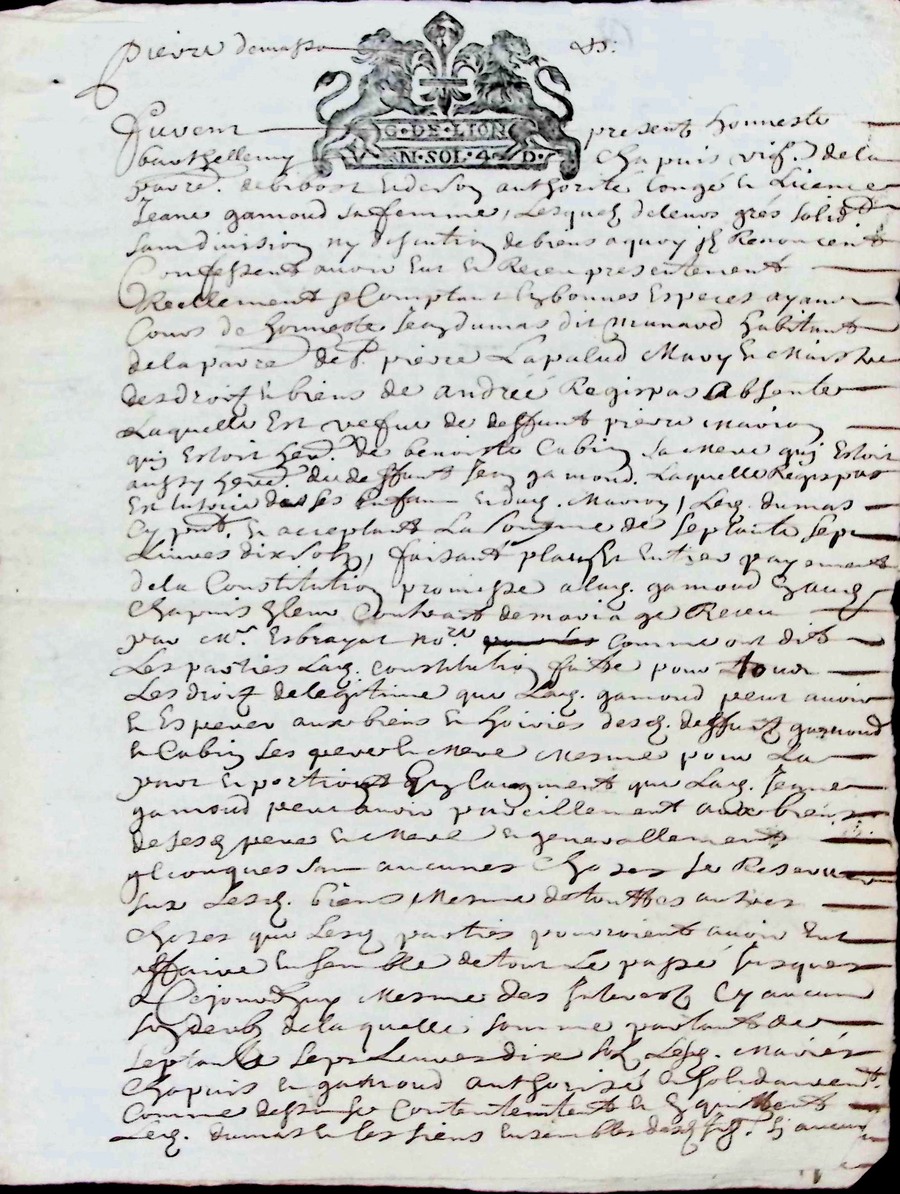 pierre demasso
G·DE·LION
N·SOL·4·D·
Furent present honneste
barthellemy Chapuis vif. de la
parre. de et de son authorité congé et Licence
Jeane gamoud sa femme, Lesquelz de leurs grés solid.
sans division ny discution de biens a quoy ils Renoncent
Confessent avoir Eut et Receu presentement
Reellement et Comptant En bonnes Especes ayant
Cours de honneste Jean dumas dit munaud habitant
de la parre. de St. pierre Lapalud Mary et Maistre
des droitz et biens de andrée Regispas absente
Laquelle Est vefue de deffunt pierre Mavion
quy Estoit her. de benoiste Cabin sa Mere quy Estoit
aussy here. du deffunt Jean gamoud. Laquelle Regispas
Est tutrice de ses Enfans et dud. Mavion, Led. dumas
Cy pnt. et acceptant La Somme de septante sept
Liures dix solz, faisant plus Entier payement
de la Constitution promisse a lad. gamoud aud.
Chapuis En leur Contrat de mariage Receu
par Mr. Esbrayat Nore. comme ont dit
Les parties Lad. constitution faitte pour tous
Les droitz de legitime que Lad. gamoud peut avoir
et Esperer aux biens et hoiries desd. deffunt gamoud
et Cabin Ses pere et Mere Mesme pour La
part et portion et que Lad. Jeane
gamoud peut avoir pareillement aux biens
de sesd pere et Mere et generallement
quelconques san aucunes Chozes se Reserver
sur Lesd. biens, Mesme de touttes autres
Chozes que Lesd parties pourroient avoir Eut
affaire Ensemble de tout Le passé Jusques
a Cejourdhuy Mesme des Interestz Cy aucun
de la quelle somme partant de
septante sept Liures dix solz Lesd. Mariés
Chapuis et gamoud authorisé et solidairement
Comme dessus se Contentent et quittent
Led. dumas et les siens Ensemble Sy aucun